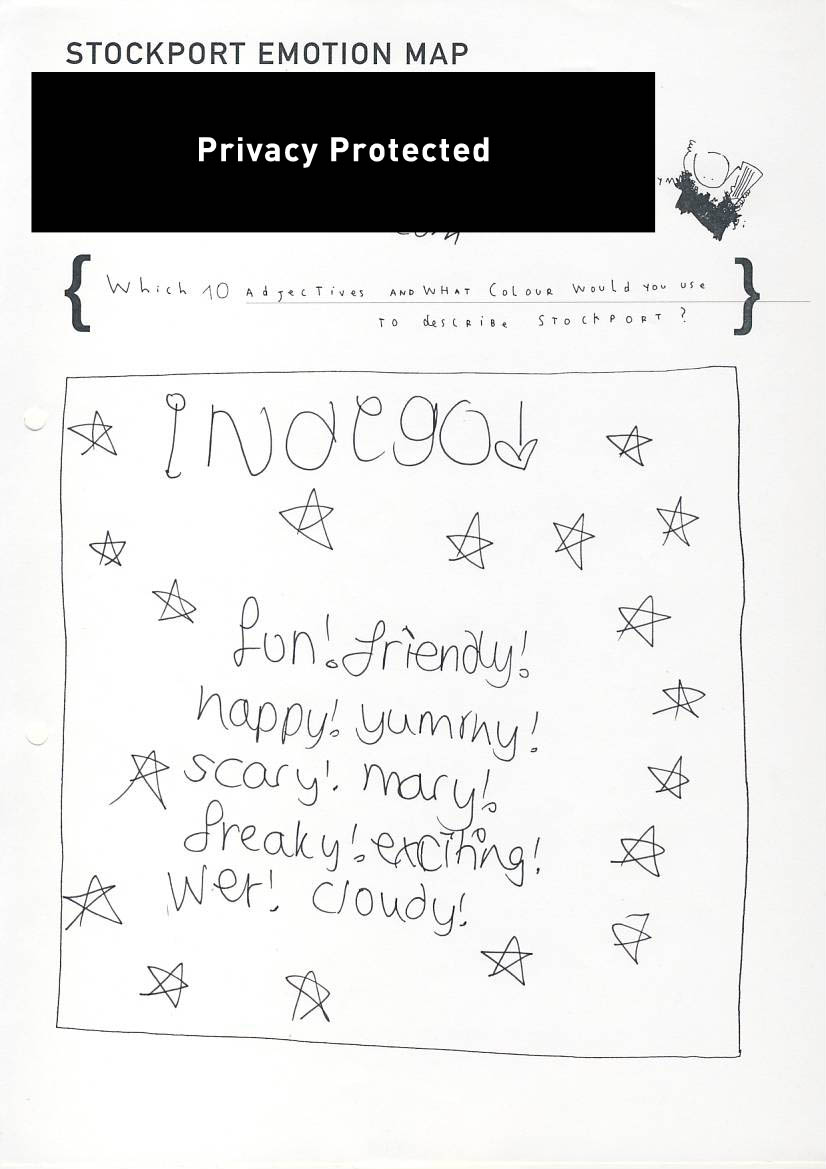 STOCKPORT EMOTION MAP
Privacy Protected
{ Which 10 AdjecTives AND WHAT Colour Would you use
TO describe STOCKPORT? }
indego
fun! friendly!
happy! yummy!
scary! mary!
freaky! exciting!
wet! cloudy!